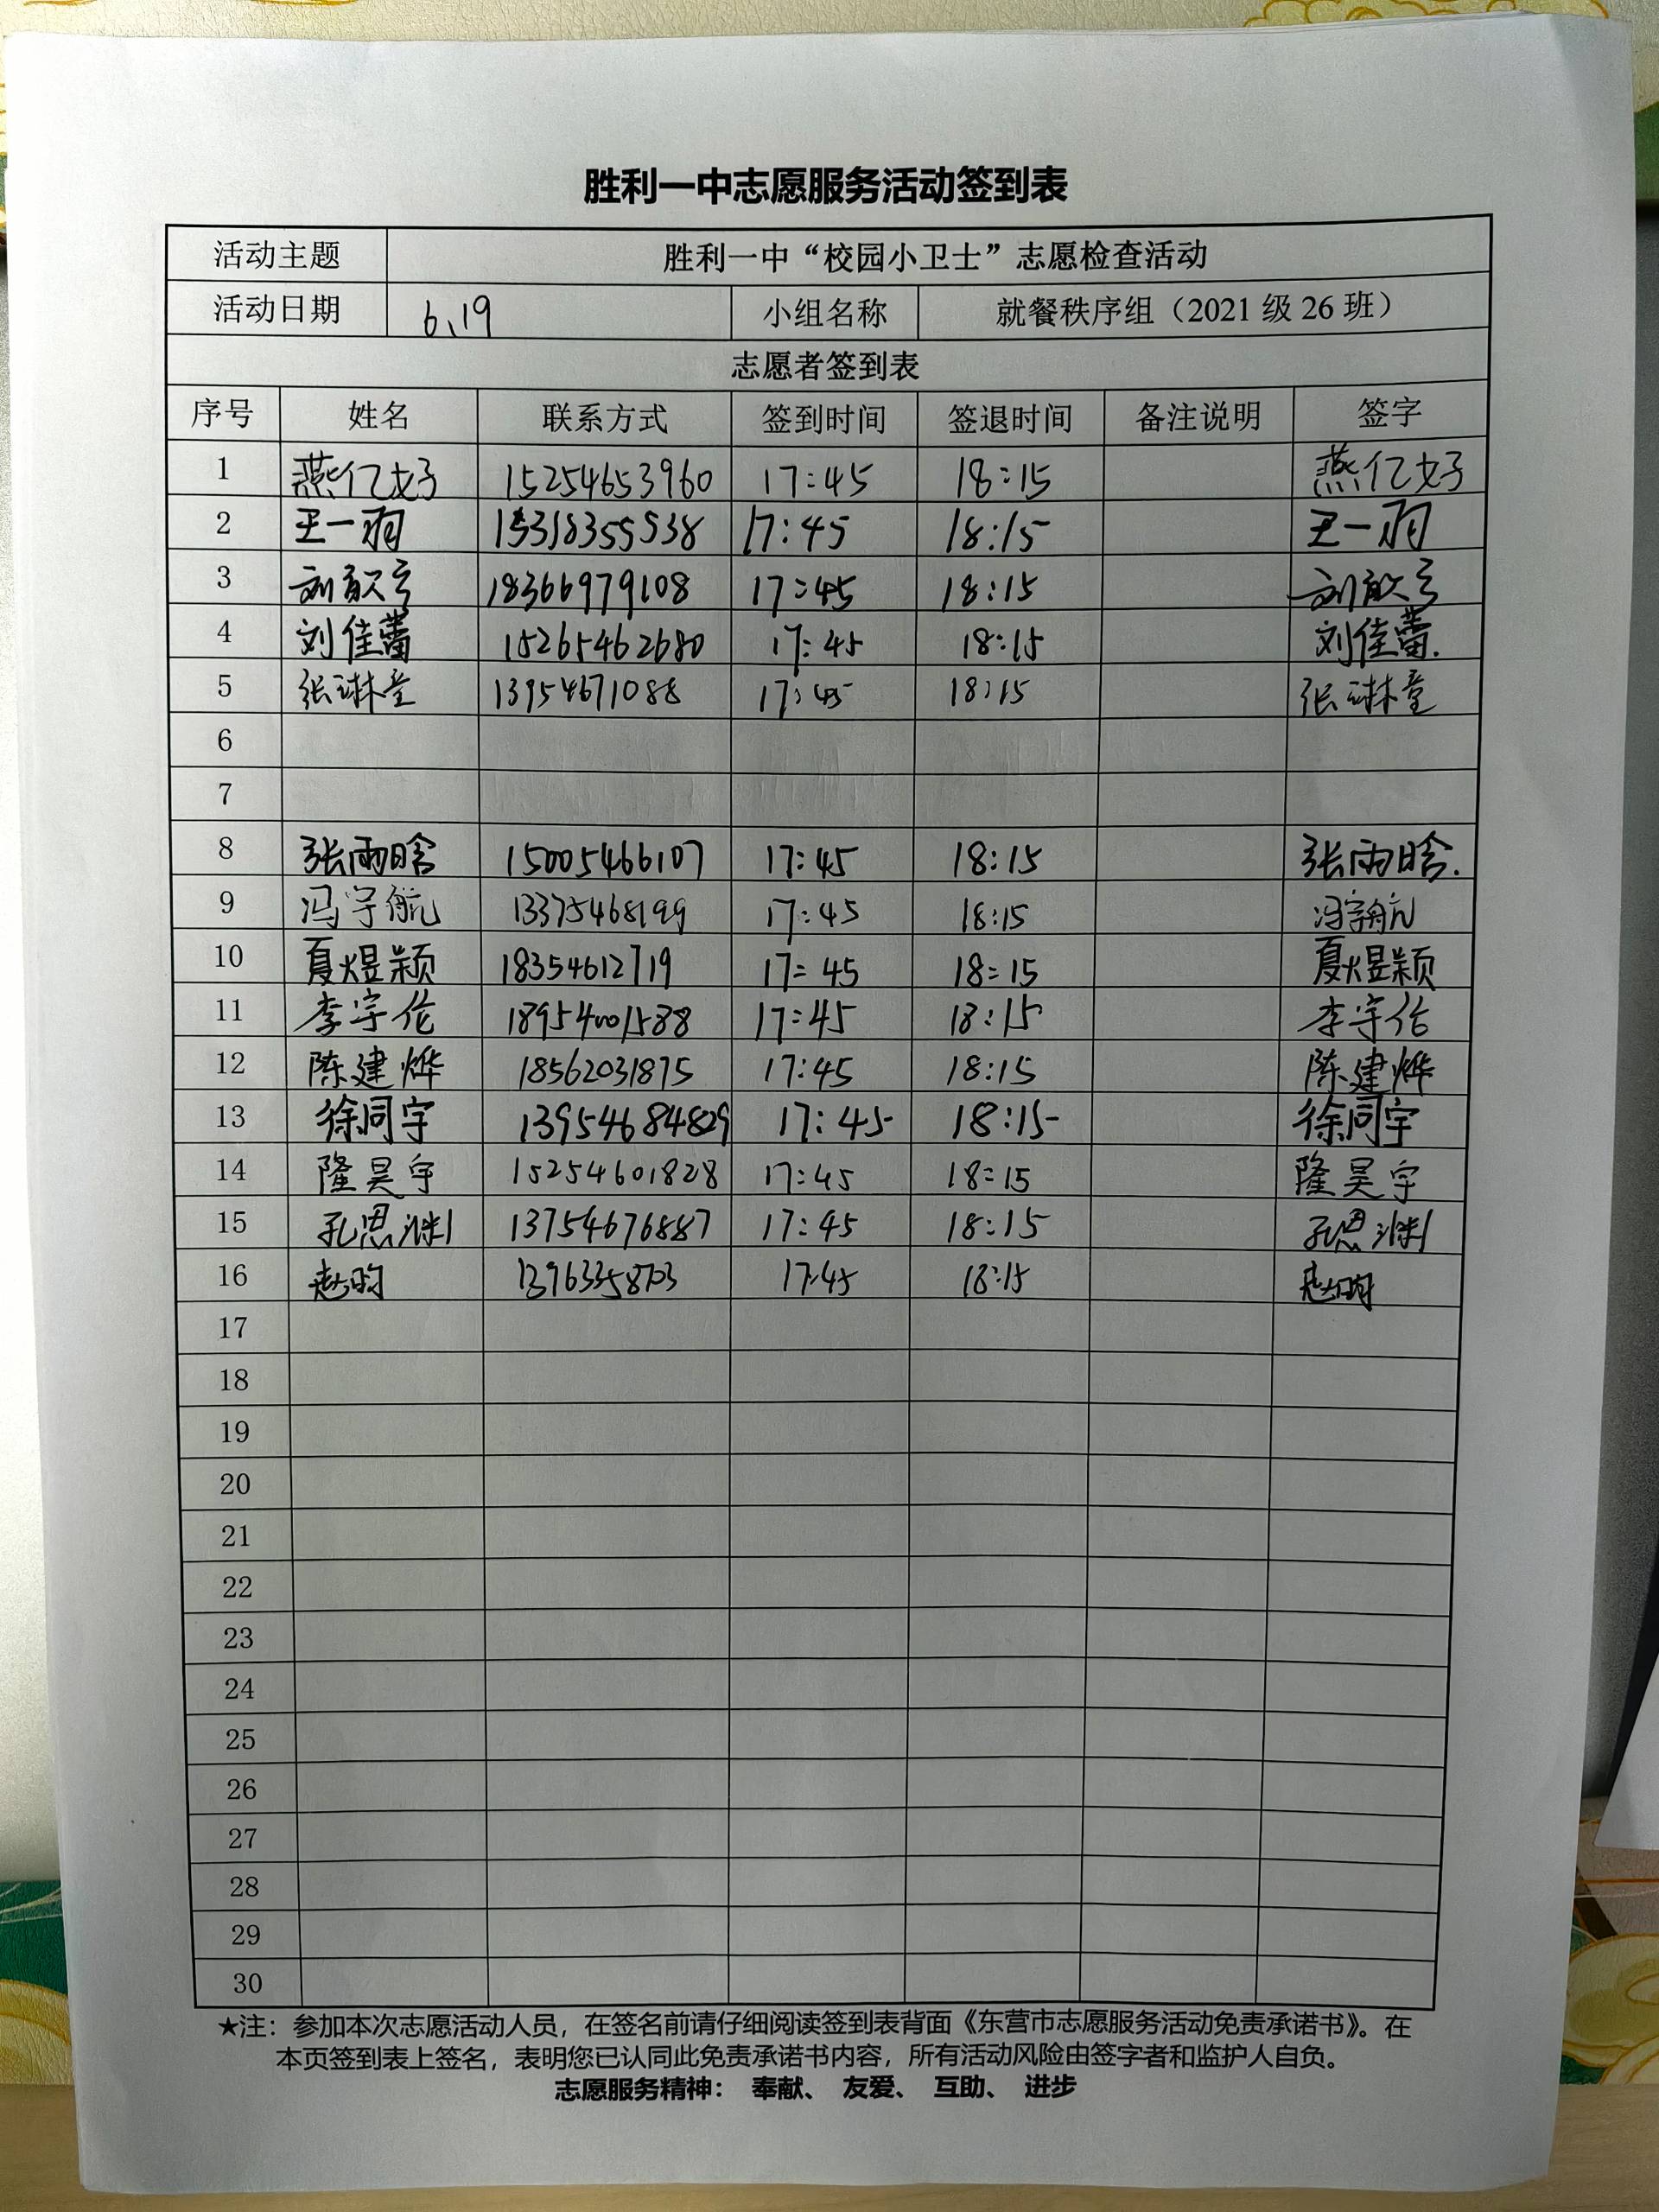 胜利一中志愿服务活动签到表
活动主题 胜利一中“校园小卫士”志愿检查活动
活动日期 6、19 小组名称 就餐秩序组（2021 级 26 班）
志愿者签到表
序号 姓名 联系方式 签到时间 签退时间 备注说明 签字
1 燕亿好 15254653960 17:45 18:15 燕亿好
2 王一羽 15318355538 17:45 18:15 王一羽
3 18366979108 17:45 18:15
4 刘佳蕾 15265462680 17:45 18:15 刘佳蕾.
5 张琳童 13954671088 17:45 18:15 张琳童
6
7
8 张雨晗 15005466107 17:45 18:15 张雨晗.
9 冯宇航 13375468199 17:45 18:15 冯宇航
10 夏煜颖 18354612719 17:45 18:15 夏煜颖
11 李宇伦 18954001588 17:45 18:15 李宇伦
12 陈建烨 18562031875 17:45 18:15 陈建烨
13 徐同宇 13954684829 17:45 18:15 徐同宇
14 隆昊宇 15254601828 17:45 18:15 隆昊宇
15 孔思渊 13754676887 17:45 18:15 孔思渊
16 赵昀 13963358703 17:45 18:15 赵昀
17
18
19
20
21
22
23
24
25
26
27
28
29
30
★注：参加本次志愿活动人员，在签名前请仔细阅读签到表背面《东营市志愿服务活动免责承诺书》。在
本页签到表上签名，表明您已认同此免责承诺书内容，所有活动风险由签字者和监护人自负。
志愿服务精神： 奉献、 友爱、 互助、 进步